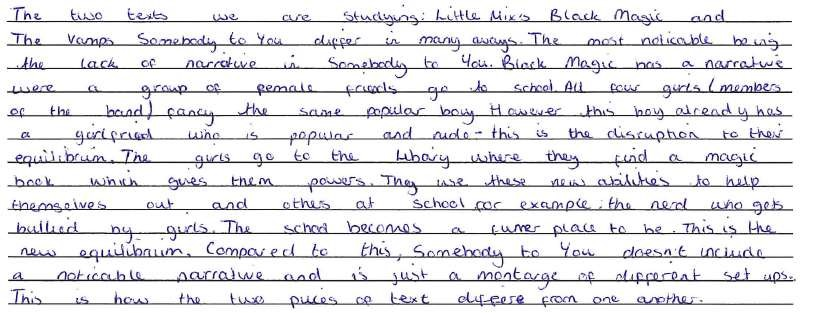 The two texts we are studying: Little Mix's Black Magic and
The Vamps Somebody to You differ in many aways. The most noticable being
the lack of narrative in Somebody to You. Black Magic has a narrative
were a group of female friends go to school. All four girls (members
of the band) fancy the same popular boy. However this boy already has
a girlfriend who is popular and rude - this is the disruption to their
equilibrium. The girls go to the library where they find a magic
book which gives them powers. They use these new abilities to help
themselves out and others at school for example: the nerd who gets
bullied by girls. The school becomes a funner place to be. This is the
new equilibrium. Compared to this, Somebody to You doesn't include
a noticable narrative and is just a montarge of different set ups.
This is how the two pieces of text differe from one another.